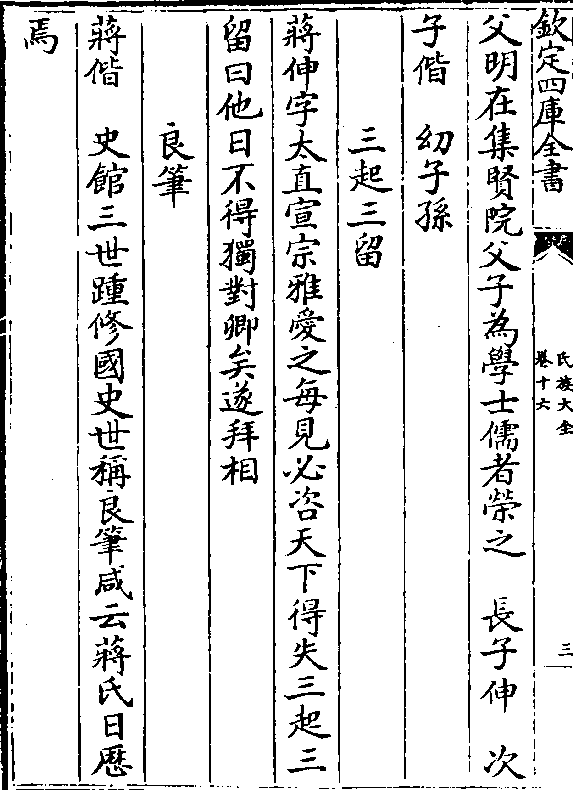 欽定四庫全書
氏族大全
卷十六
三
父明在集賢院父子為學士儒者榮之　長子伸　次
子偕　幼子孫
三起三留
蔣伸字太直宣宗雅愛之每見必咨天下得失三起三
留曰他日不得獨對卿矣遂拜相
良筆
蔣偕　史館三世踵修國史世稱良筆咸云蔣氏日厯
焉